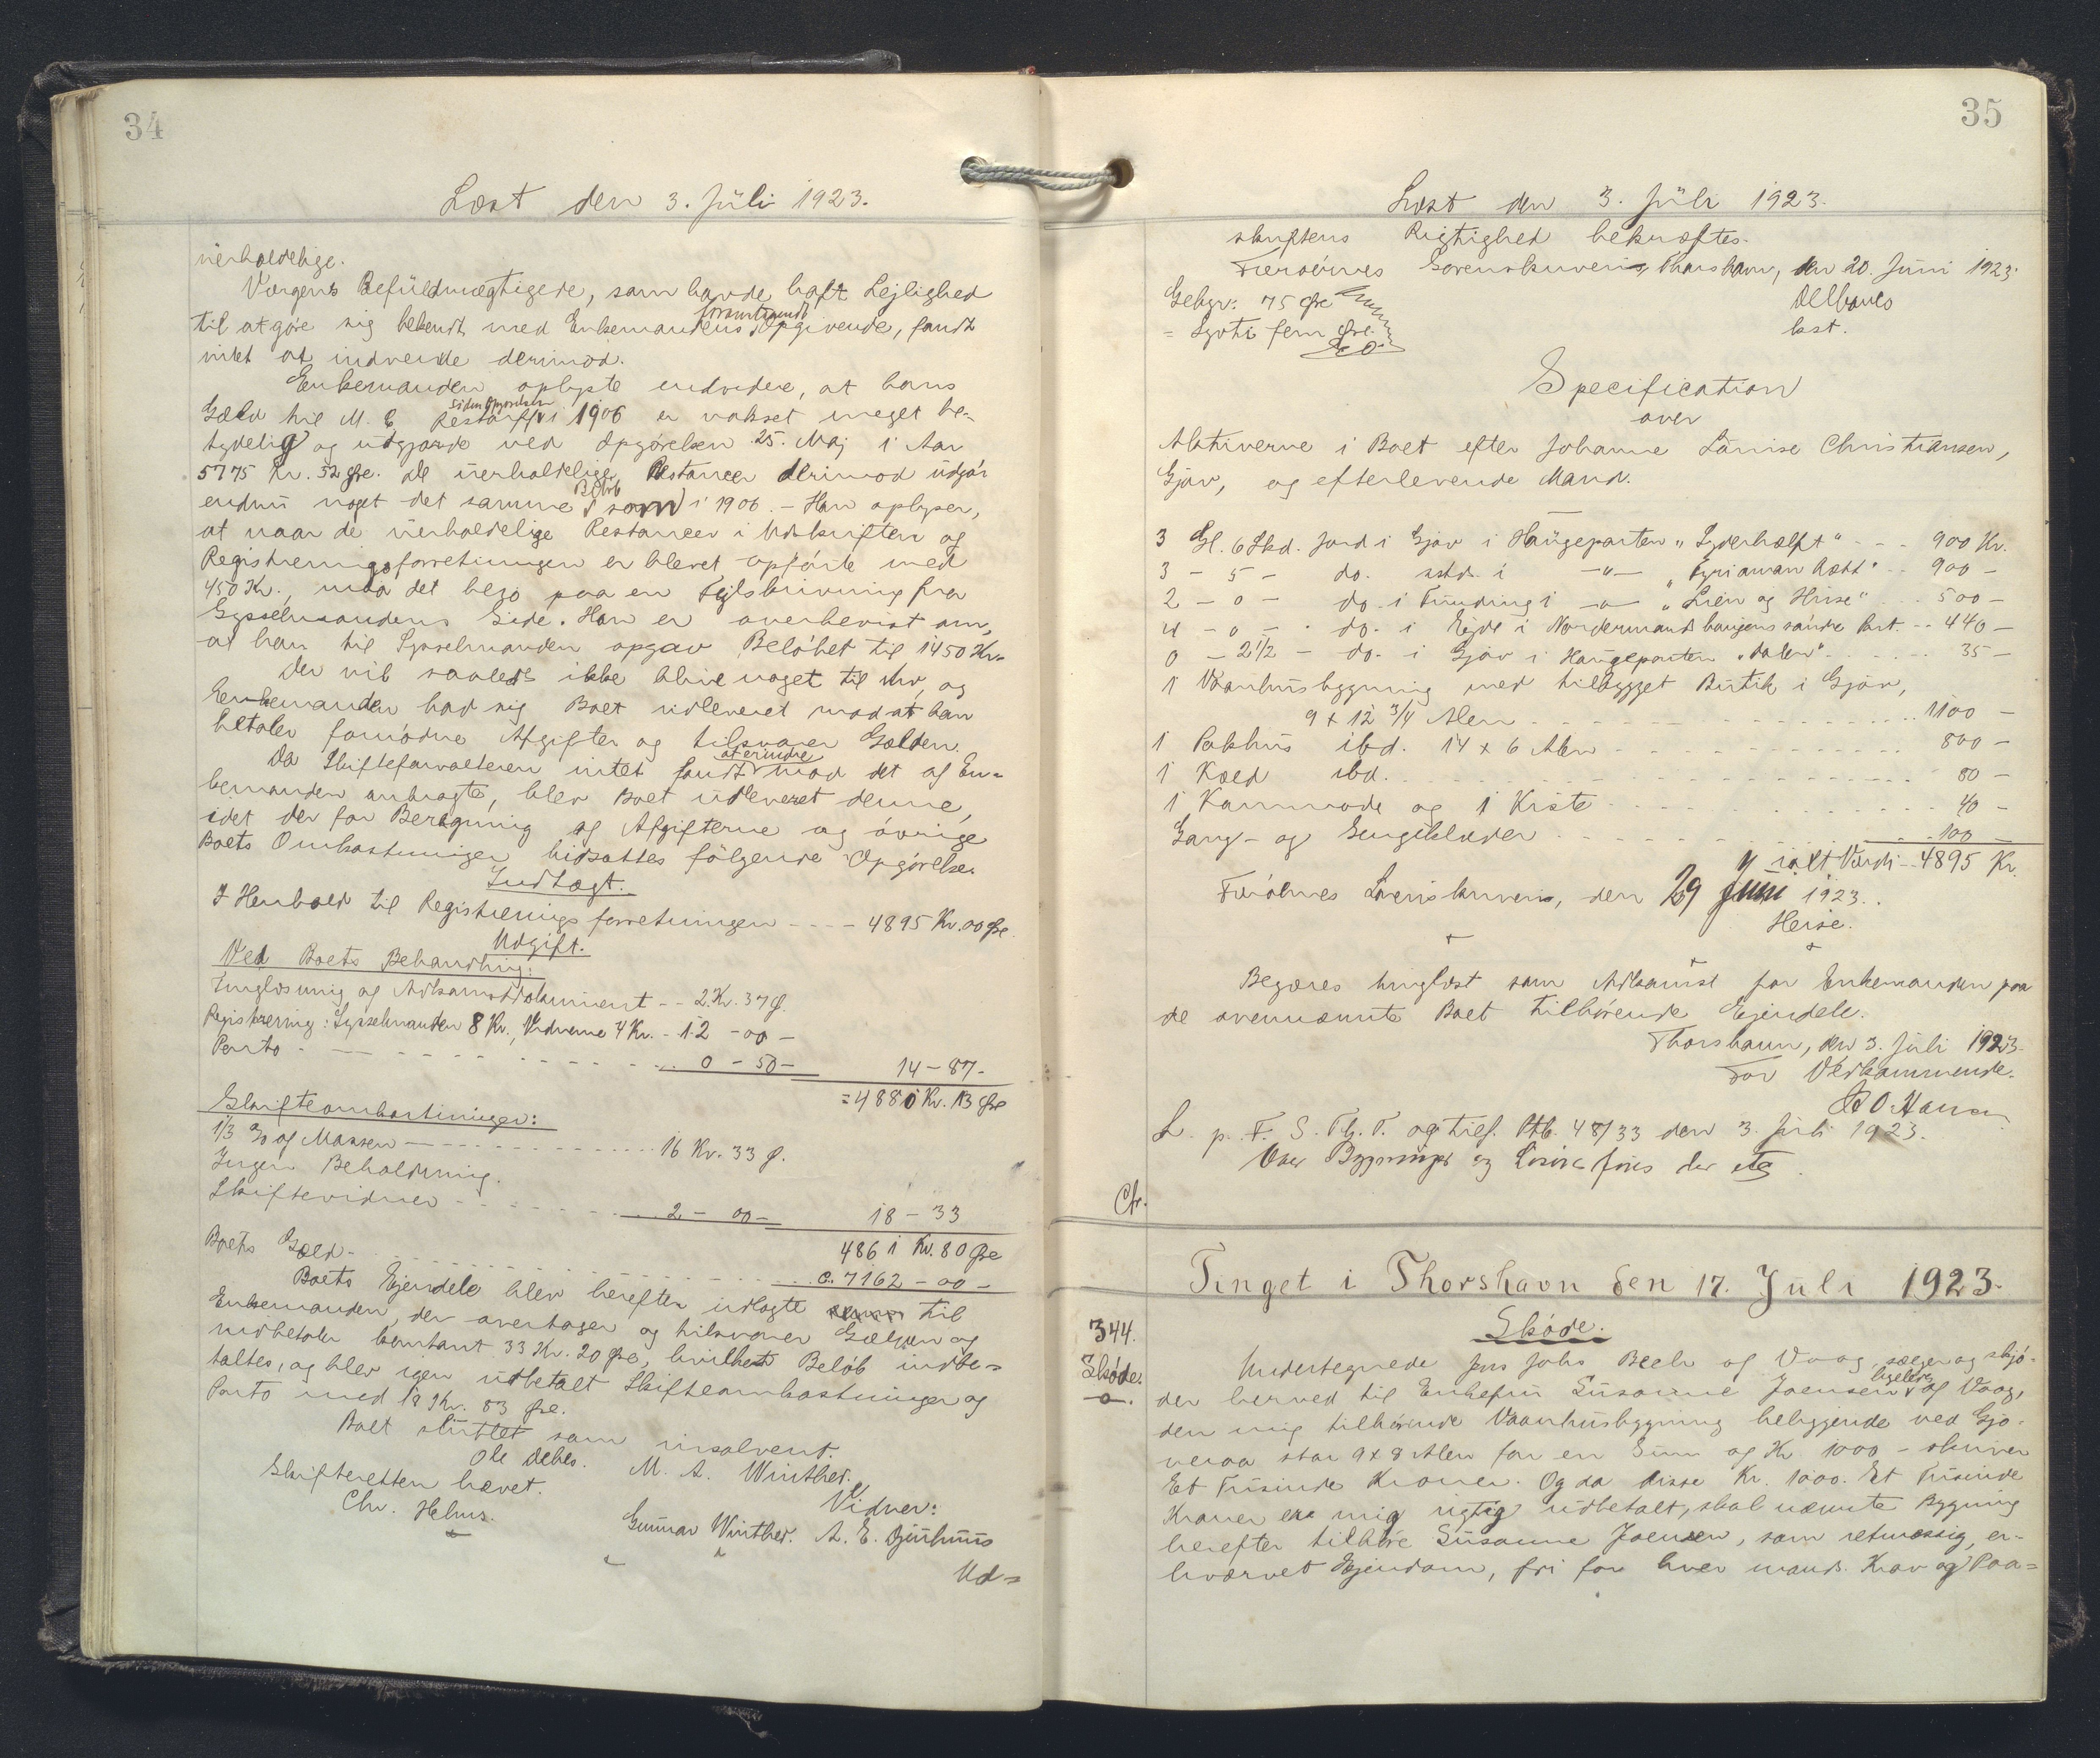 34
Læst den 3. Jüli 1923.
üerholdelige.
Værgens Befüldmægtigede, som havde haft Lejlighed
til at göre sig bekendt med Enkemandens foranstaaende Opgivende, fandt
intet at indvende derimod.
Enkemanden oplyste endvidere, at hans
Gæld til M. C. Restorff siden Opgörelsen i 1906 er vokset meget be-
tydelig og üdgjorde ved Opgörelsen 25. Maj i Aar
5775 Kr. 52 Øre. De üerholdelige Restancer derimod üdgör
endnü noget det samme Beløb som i 1906. - Han oplyser,
at naar de üerholdelige Restancer i Udskriften og
Registreringsforretningen er blevet opförte med
450 Kr., maa det bero paa en Fejlskrivning fra
Sysselmandens Side. Han er overbevist om,
at han til Sysselmanden opgav Belöbet til 1450 Kr.
Der vil saaledes ikke blive noget til Arv, og
Enkemanden bad sig Boet üdleveret mod at han
betaler fornödne Afgifter og tilsvarer Gælden.
Da Skifteforvalteren intet fandt at erindre mod det af En-
kemanden anbragte, blev Boet üdleveret denne,
idet der for Beregning af Afgifterne og övrige
Boets Omkostninger hidsattes fölgende Opgörelse.
Indtægt.
I Henhold til Registreringsforretningen ---- 4895 Kr. 00 Øre
Udgift.
Ved Boets Behandling:
Tinglæsning af Adkomstdokument -- 2 Kr. 37 Ø.
Registrering: Sysselmanden 8 Kr., Vidnerne 4 Kr. - 12 - 00 -
Porto - - - - - 0 - 50 - 14 - 87 -
= 4880 Kr. 13 Øre
Skifteomkostninger:
1/3 % af Massen - - - - - 16 Kr. 33 Ø.
Ingen Beholdning.
Skiftevidner - - - - - 2 - 00 - 18 - 33
4861 Kr. 80 Øre
Boets Gæld - - - - - c. 7162 - 00 -
Boets Ejendele blev herefter üdlagte til
Enkemanden, der overtager og tilsvarer Gælden og
indbetaler kontant 33 Kr. 20 Øre, hvilket Beløb indbe-
taltes, og blev igen üdbetalt Skifteomkostninger og
Porto med 18 Kr. 83 Øre.
Boet slüttet som insolvent.
Ole Debes. M. A. Winther.
Skifteretten hævet.
Chr. Helms.
Vidner:
Gunnar Winther. A. E. Djurhuus
Ud-
35
Læst den 3. Jüli 1923.
skriftens Rigtighed bekræftes.
Færöernes Sorenskriveri, Thorshavn, den 20. Jüni 1923.
Gebyr: 75 Øre
= Syvti fem Øre.
kst.
Specification
over
Aktiverne i Boet efter Johanne Lovise Christiansen,
Gjov, og efterlevende Mand.
3 Gl. 6 Skd. Jord i Gjov i Haugeparten "Syderhælft" - - - 900 Kr.
3 - 5 - do. sstd. i -"- " Fyri aman Kodt" - - 900 -
2 - 0 - do. i Funding i -"- "Lien og Huse" - - - 500 -
4 - 0 - do. i Ejde i Nordermandshaugens söndre Part. - - 440 -
0 - 2 1/2 - do. i Gjov i Haugeparten "Dalen" - - - - - 35 -
1 Vaanhusbygning med tilbygget Butik i Gjov,
9 x 12 3/4 Alen - - - - - 1100 -
1 Pakhus ibd. 14 x 6 Alen - - - - - 800 -
1 Kæld ibd. - - - - - 80 -
1 Kommode og 1 Kiste - - - - - 40 -
Gang- og Sengeklæder - - - - - 100 -
ialt Værdi - - 4895 Kr.
Færöernes Sorenskriveri, den 29 Juni 1923.
Heise.
Begæres tinglæst som Adkomst for Enkemanden paa
de ovennævnte Boet tilhörende Ejendele.
Thorshavn, den 3. Jüli 1923
For Vedkommende.
O. Hansen
L. p. F. S. Th. T. og tilf. Ptb. 48/33 den 3. Jüli 1923.
Over Bygninger og Løsöre føres der
Chr.
Tinget i Thorshavn den 17. Jüli 1923.
344.
Sköde.
Sköde.
-o-.
Undertegnede Jens Johs Bech af Vaag, sælger og skjö-
der herved til Enkefrü Süsanne Joensen ligeledes af Vaag,
den mig tilhörende Vaanhüsbygning beliggende ved Gjo-
veraa stor 9 x 8 Alen for en Sum af Kr. 1000 - skriver
Et Tüsinde Kroner. Og da disse Kr. 1000. Et Tüsinde
Kroner ere mig rigtig üdbetalt, skal nævnte Bygning
herefter tilhöre Süsanne Joensen, som retmæssig er-
hværvet Ejendom, fri for hver mands Krav og Paa=